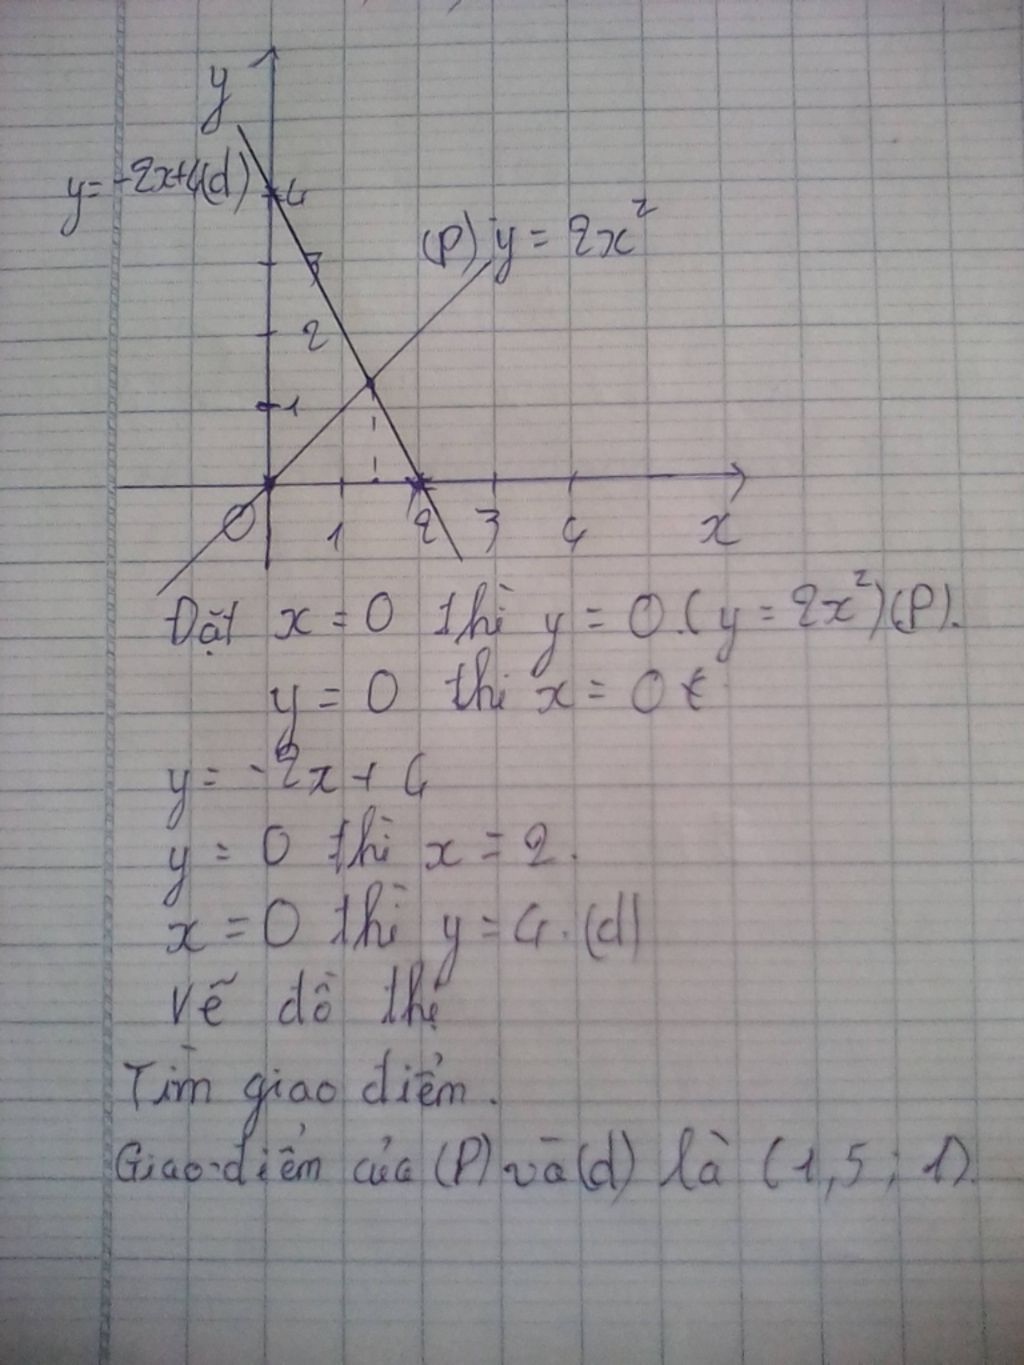 y
y = -2x+4(d)
4
(P) y = 2x²
3
2
1
O 1 2 3 4 x
Đặt x = 0 thì y = 0.(y = 2x²)(P).
y = 0 thì x = 0
y = -2x + 4
y = 0 thì x = 2.
x = 0 thì y = 4. (d)
Vẽ đồ thị
Tìm giao điểm.
Giao điểm của (P) và (d) là (1,5; 1).